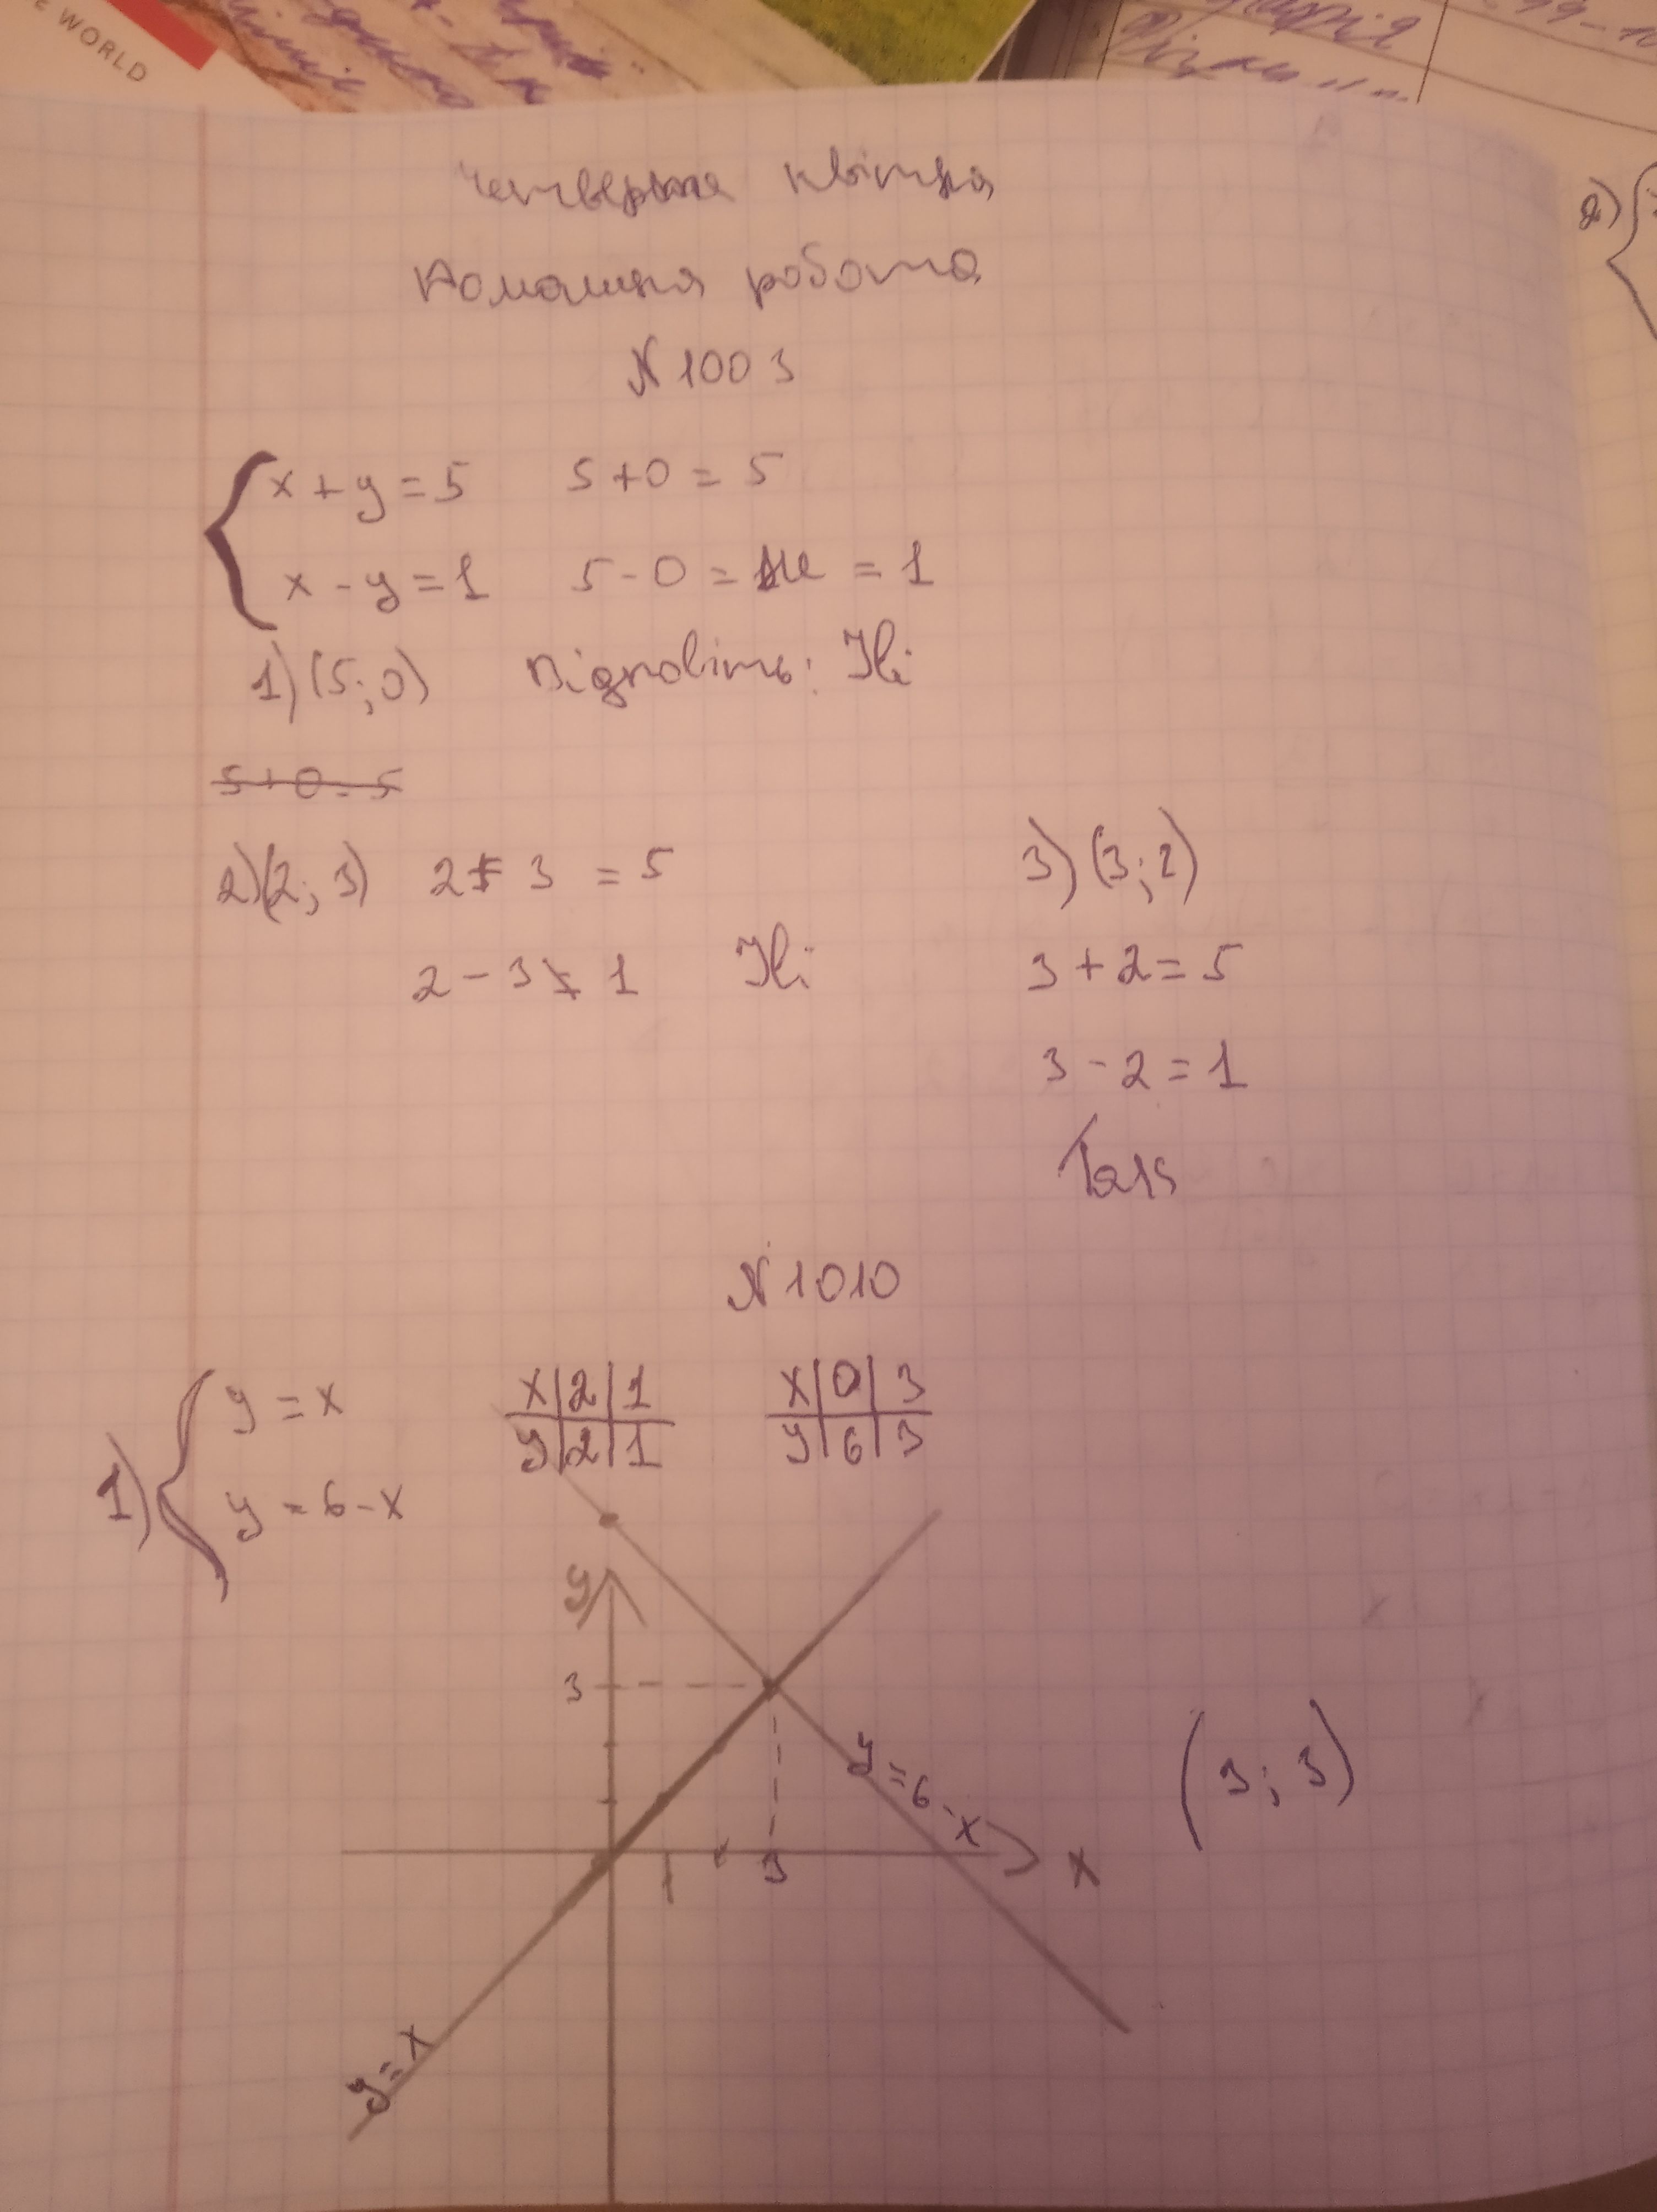 WORLD
четверте квітня
Домашня робота
№ 1003
x + y = 5 5 + 0 = 5
x - y = 1 5 - 0 = не = 1
1) (5; 0) Відповідь: Ні
5 + 0 = 5
2) (2; 3) 2 + 3 = 5
2 - 3 ≠ 1 Ні
3) (3; 2)
3 + 2 = 5
3 - 2 = 1
Так
№ 1010
1) y = x
y = 6 - x
x | 2 | 1
y | 2 | 1
x | 0 | 3
y | 6 | 3
y
3
y = 6 - x
1 3 x
y = x
(3; 3)
2)